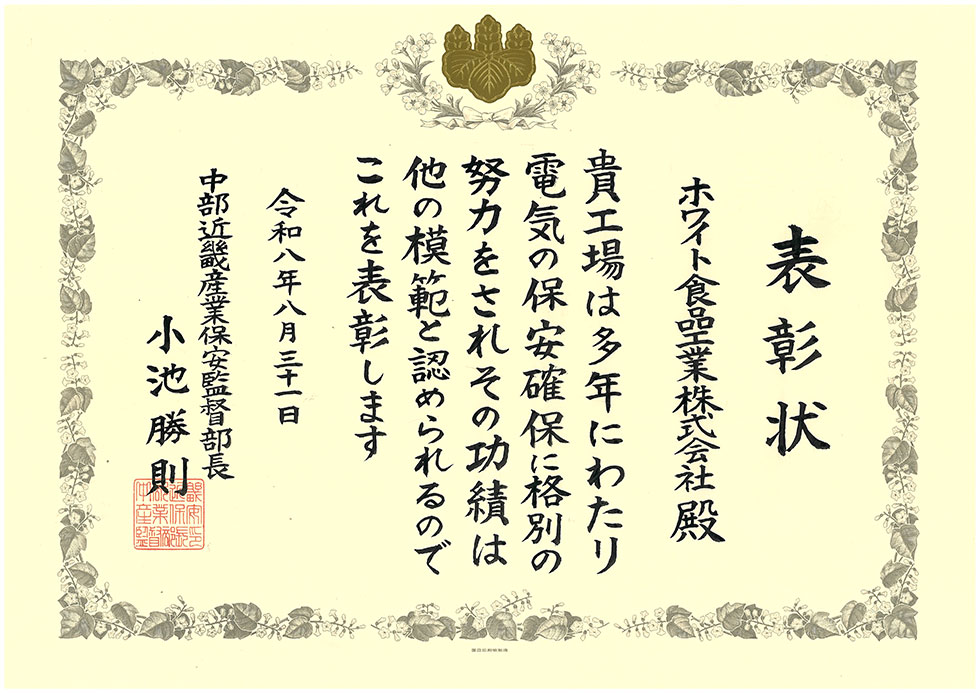 表彰状
ホワイト食品工業株式会社殿
貴工場は多年にわたり
電気の保安確保に格別の
努力をされその功績は
他の模範と認められるので
これを表彰します
令和八年八月三十一日
中部近畿産業保安監督部長
小池勝則